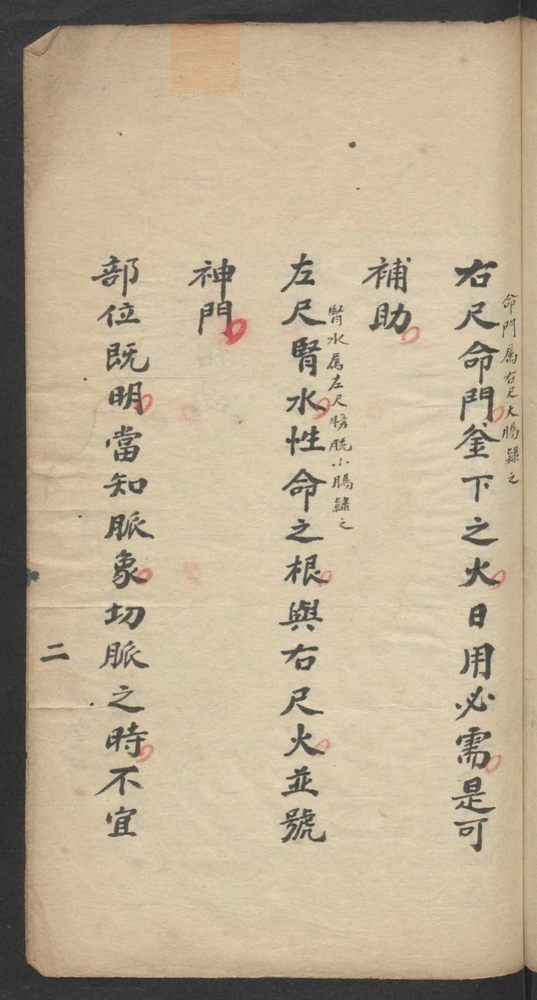 命門屬右尺大腸錄之
右尺命門釜下之火日用必需是可
補助
腎水屬左尺膀胱小腸錄之
左尺腎水性命之根與右尺火並號
神門
部位既明當知脈象切脈之時不宜
二